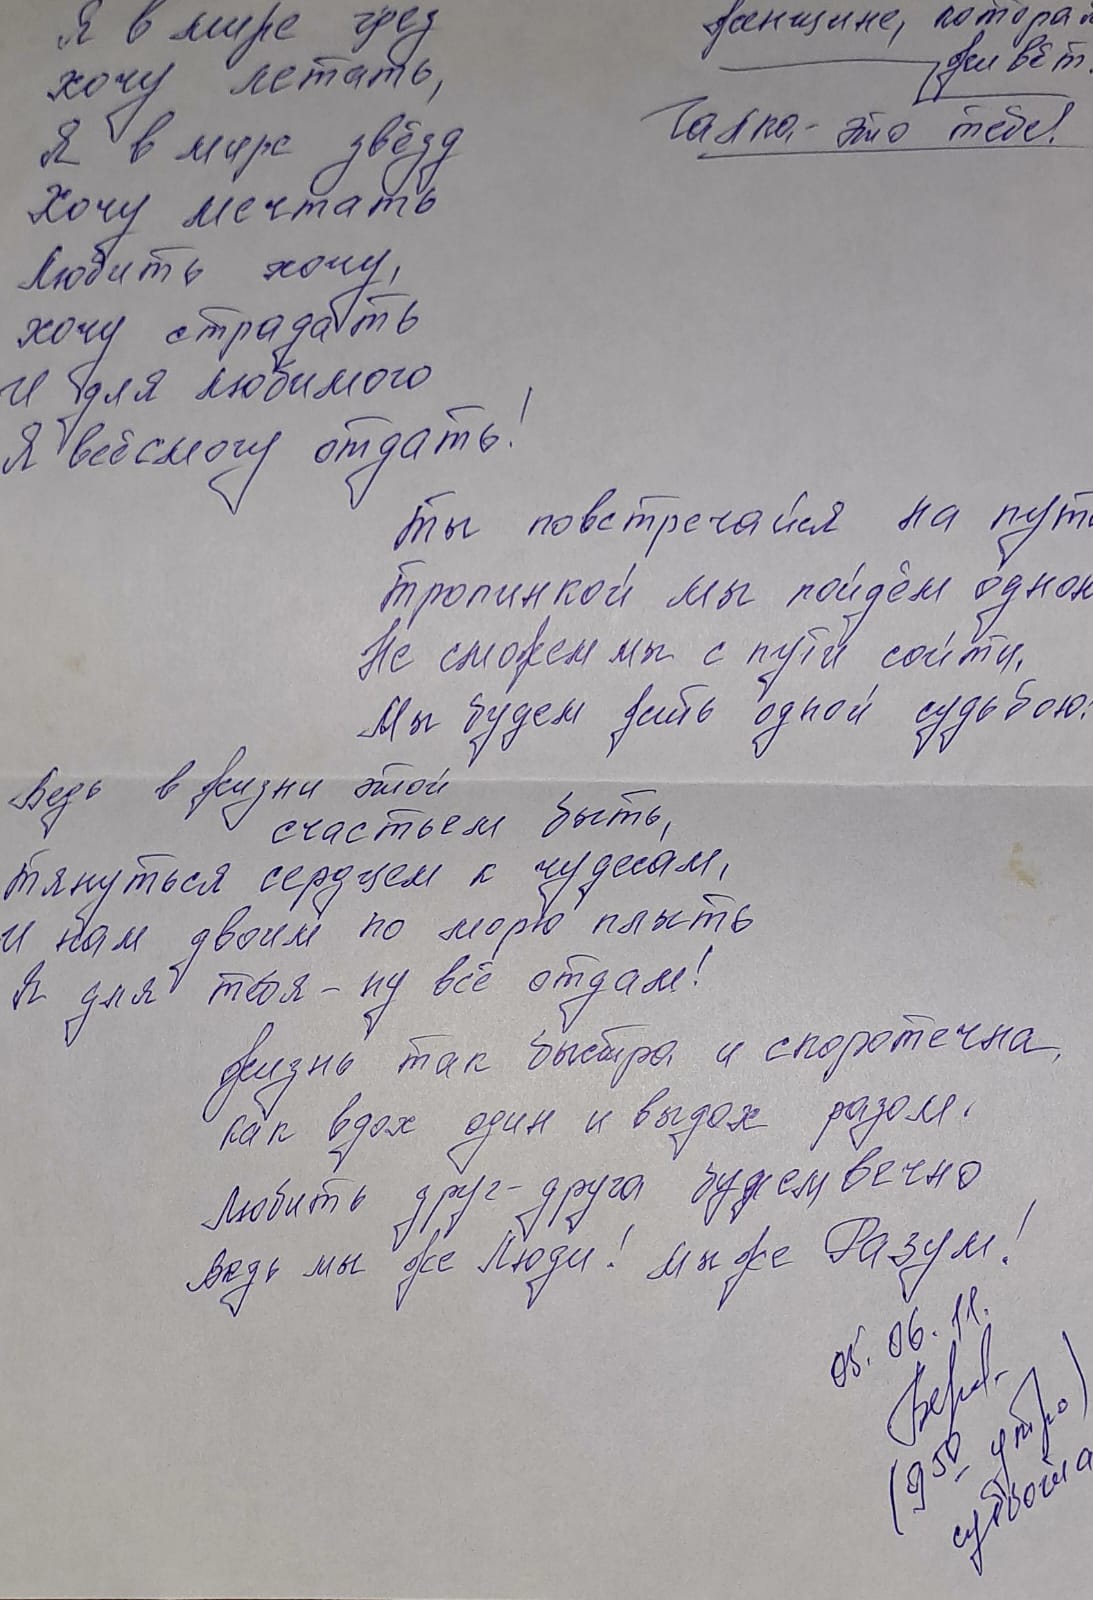 Женщине, которая
живёт.
Галка - это тебе!
Я в мире грёз
хочу летать,
Я в мире звёзд
Хочу мечтать
Любить хочу,
хочу страдать
И для любимого
Я всё смогу отдать!
Ты повстречайся на пути
Тропинкой мы пойдём одной
Не сможем мы с пути сойти,
Мы будем жить одной судьбою.
Ведь в жизни этой
счастьем быть,
Тянуться сердцем к чудесам,
И нам двоим по морю плыть
Я для тебя - ну всё отдам!
Жизнь так быстра и скоротечна,
как вдох один и выдох разом.
Любить друг-друга будем вечно
Ведь мы же Люди! Мы же Разум!
05.06.11.
(950 - утро)
суббота